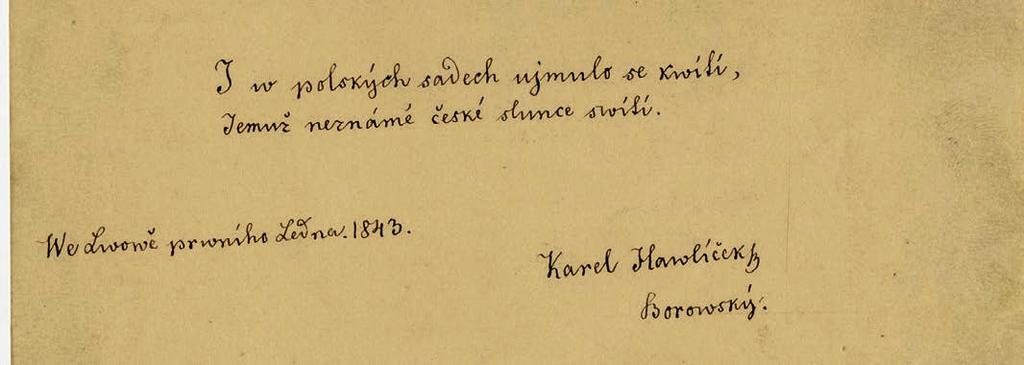 I w polských sadech ujmulo se kwítí,
Jemuž neznámé české slunce swítí.
We Lwowě prwního Ledna. 1843.
Karel Hawlíček
Borowský.